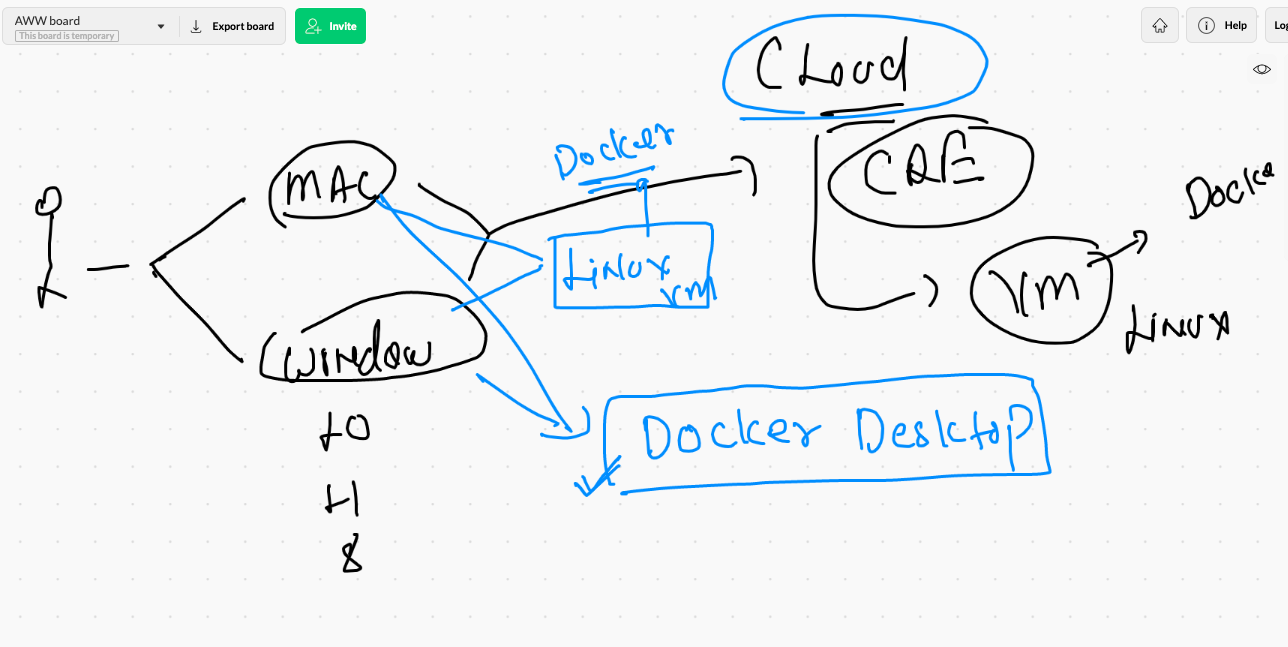 AWW board
This board is temporary
Export board
Invite
Help
Log
CLoud
Docker
MAC
CRE
Docke
Linux
VM
VM
Linux
Window
10
11
8
Docker Desktop